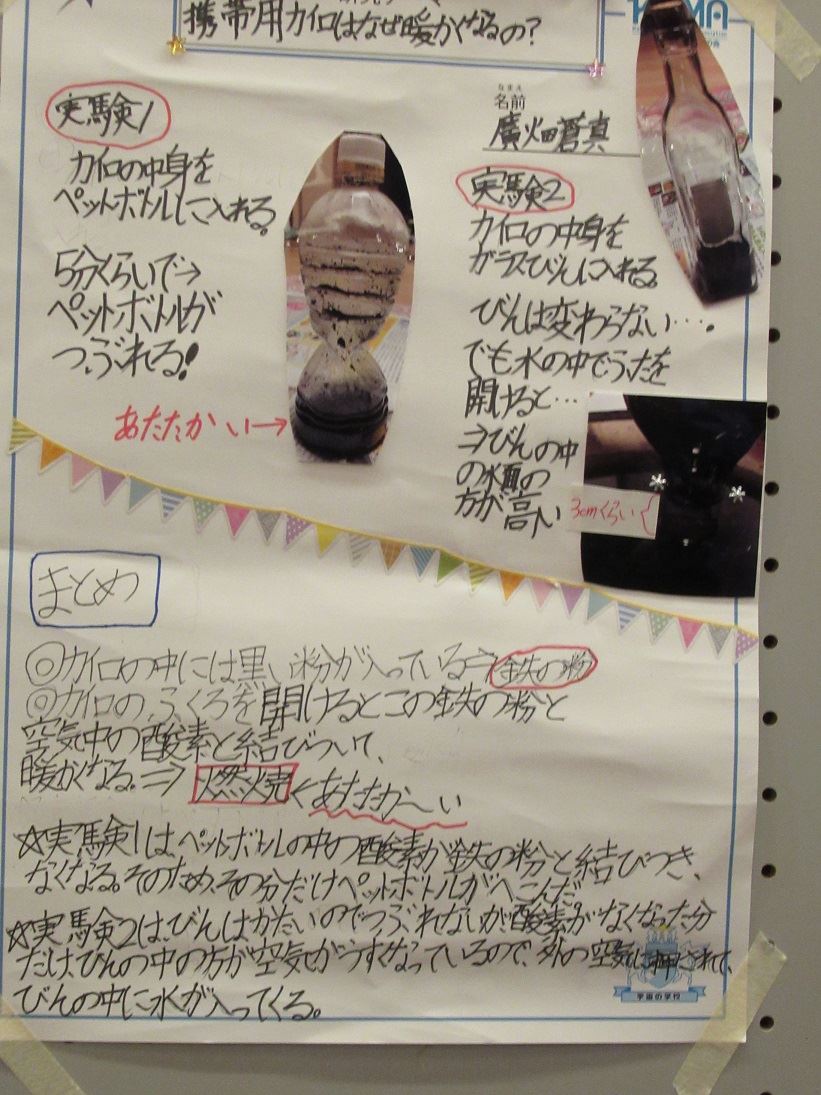 携帯用カイロはなぜ暖かくなるの?
なまえ
名前
廣畑蒼真
実験1
カイロの中身を
ペットボトルに入れる。
5分くらいで→
ペットボトルが
つぶれる!
あたたかい→
実験2
カイロの中身を
ガラスびんに入れる。
びんは変わらない….
でも水の中でふたを
開けると…
⇒びんの中
の水面の
方が高い
3cmくらい{
まとめ
◎カイロの中には黒い粉が入っている⇒鉄の粉
◎カイロのふくろを開けるとこの鉄の粉と
空気中の酸素と結びついて、
暖かくなる。⇒燃焼<あたたか〜い
☆実験1は、ペットボトルの中の酸素が鉄の粉と結びつき、
なくなる。そのため、その分だけペットボトルがへこんだ
☆実験2は、びんはかたいのでつぶれないが、酸素がなくなった分
だけ、びんの中の方が空気がうすくなっているので、外の空気に押されて、
びんの中に水が入ってくる。
宇宙の学校